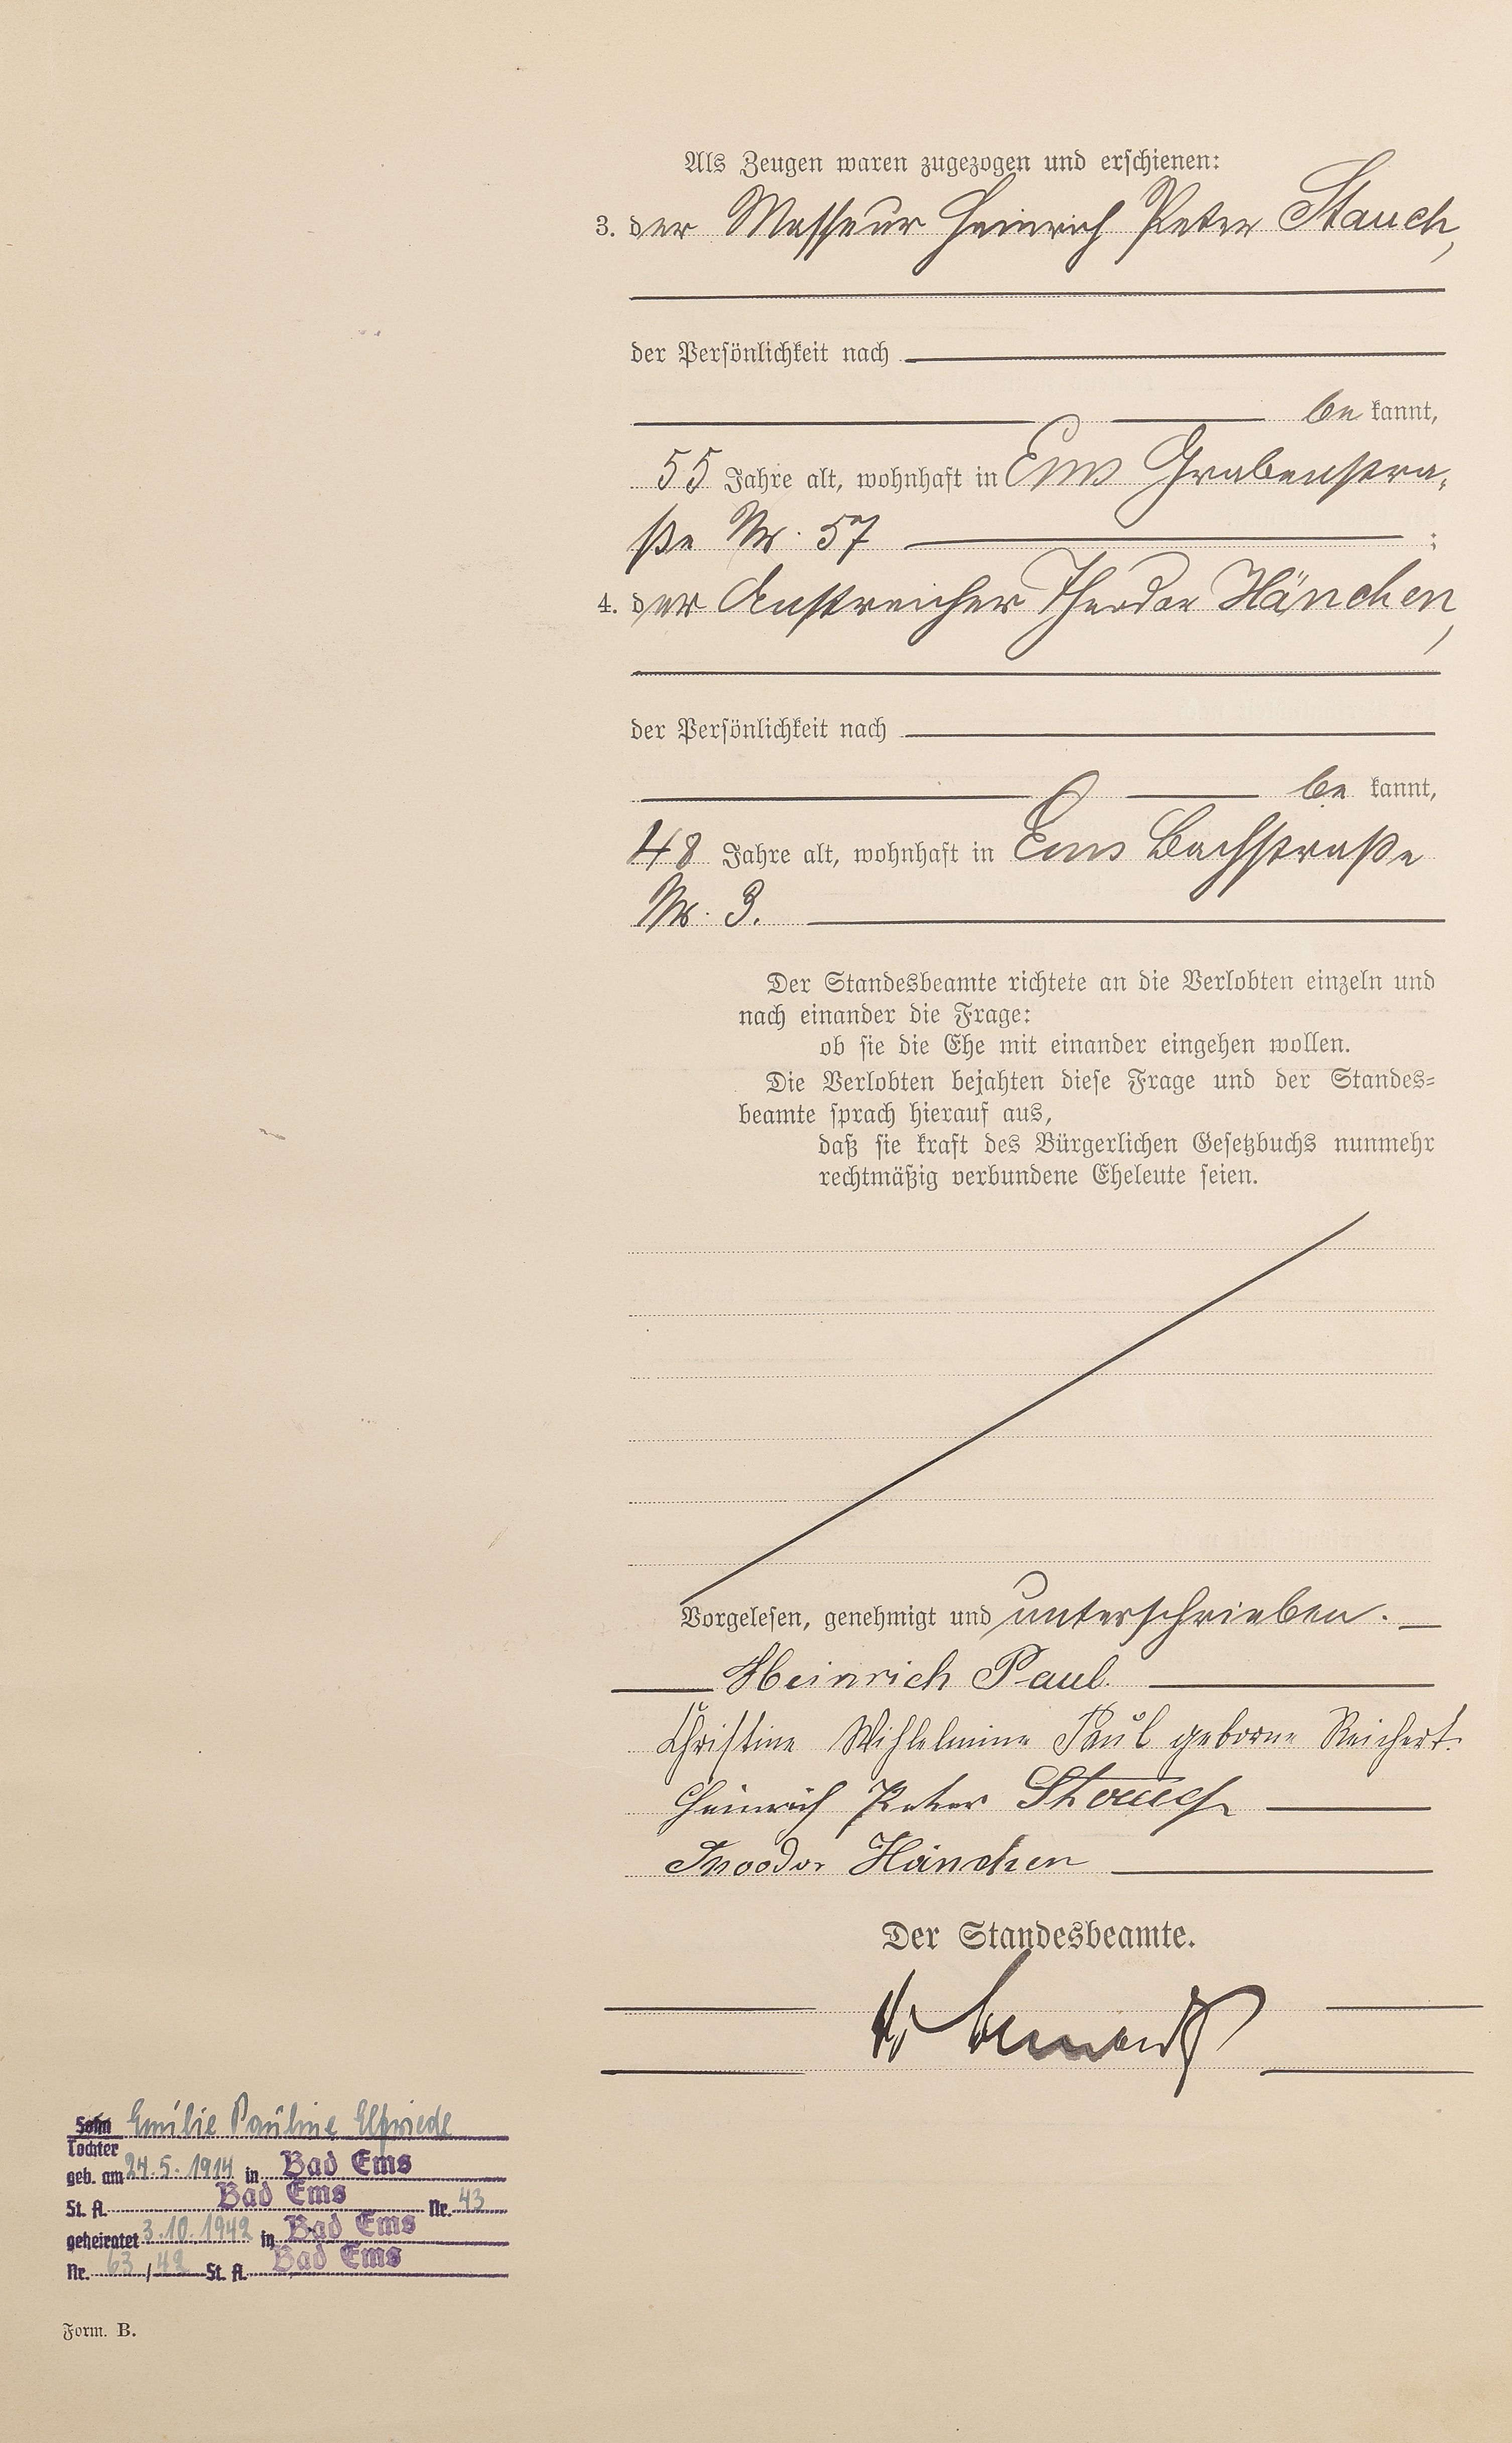 Als Zeugen waren zugezogen und erschienen:
3. der Masseur Heinrich Peter Stauch,
der Persönlichkeit nach
be kannt,
55 Jahre alt, wohnhaft in Ems Grabenstra-
ße Nr. 57 ;
4. der Anstreicher Theodor Hänchen,
der Persönlichkeit nach
be kannt,
48 Jahre alt, wohnhaft in Ems Bachstraße
Nr. 3.
Der Standesbeamte richtete an die Verlobten einzeln und
nach einander die Frage:
ob sie die Ehe mit einander eingehen wollen.
Die Verlobten bejahten diese Frage und der Standes-
beamte sprach hierauf aus,
daß sie kraft des Bürgerlichen Gesetzbuchs nunmehr
rechtmäßig verbundene Eheleute seien.
Vorgelesen, genehmigt und unterschrieben.
Heinrich Paul.
Christine Wihlelmine Paul geborne Reichert.
Heinrich Peter Stauch
Theodor Hänchen
Der Standesbeamte.
Sohn Emilie Pauline Elfriede
Tochter
geb. am 24.5.1914 in Bad Ems
St. A. Bad Ems Nr. 43
geheiratet 3.10.1942 in Bad Ems
Nr. 63/42 St. A. Bad Ems
Form. B.